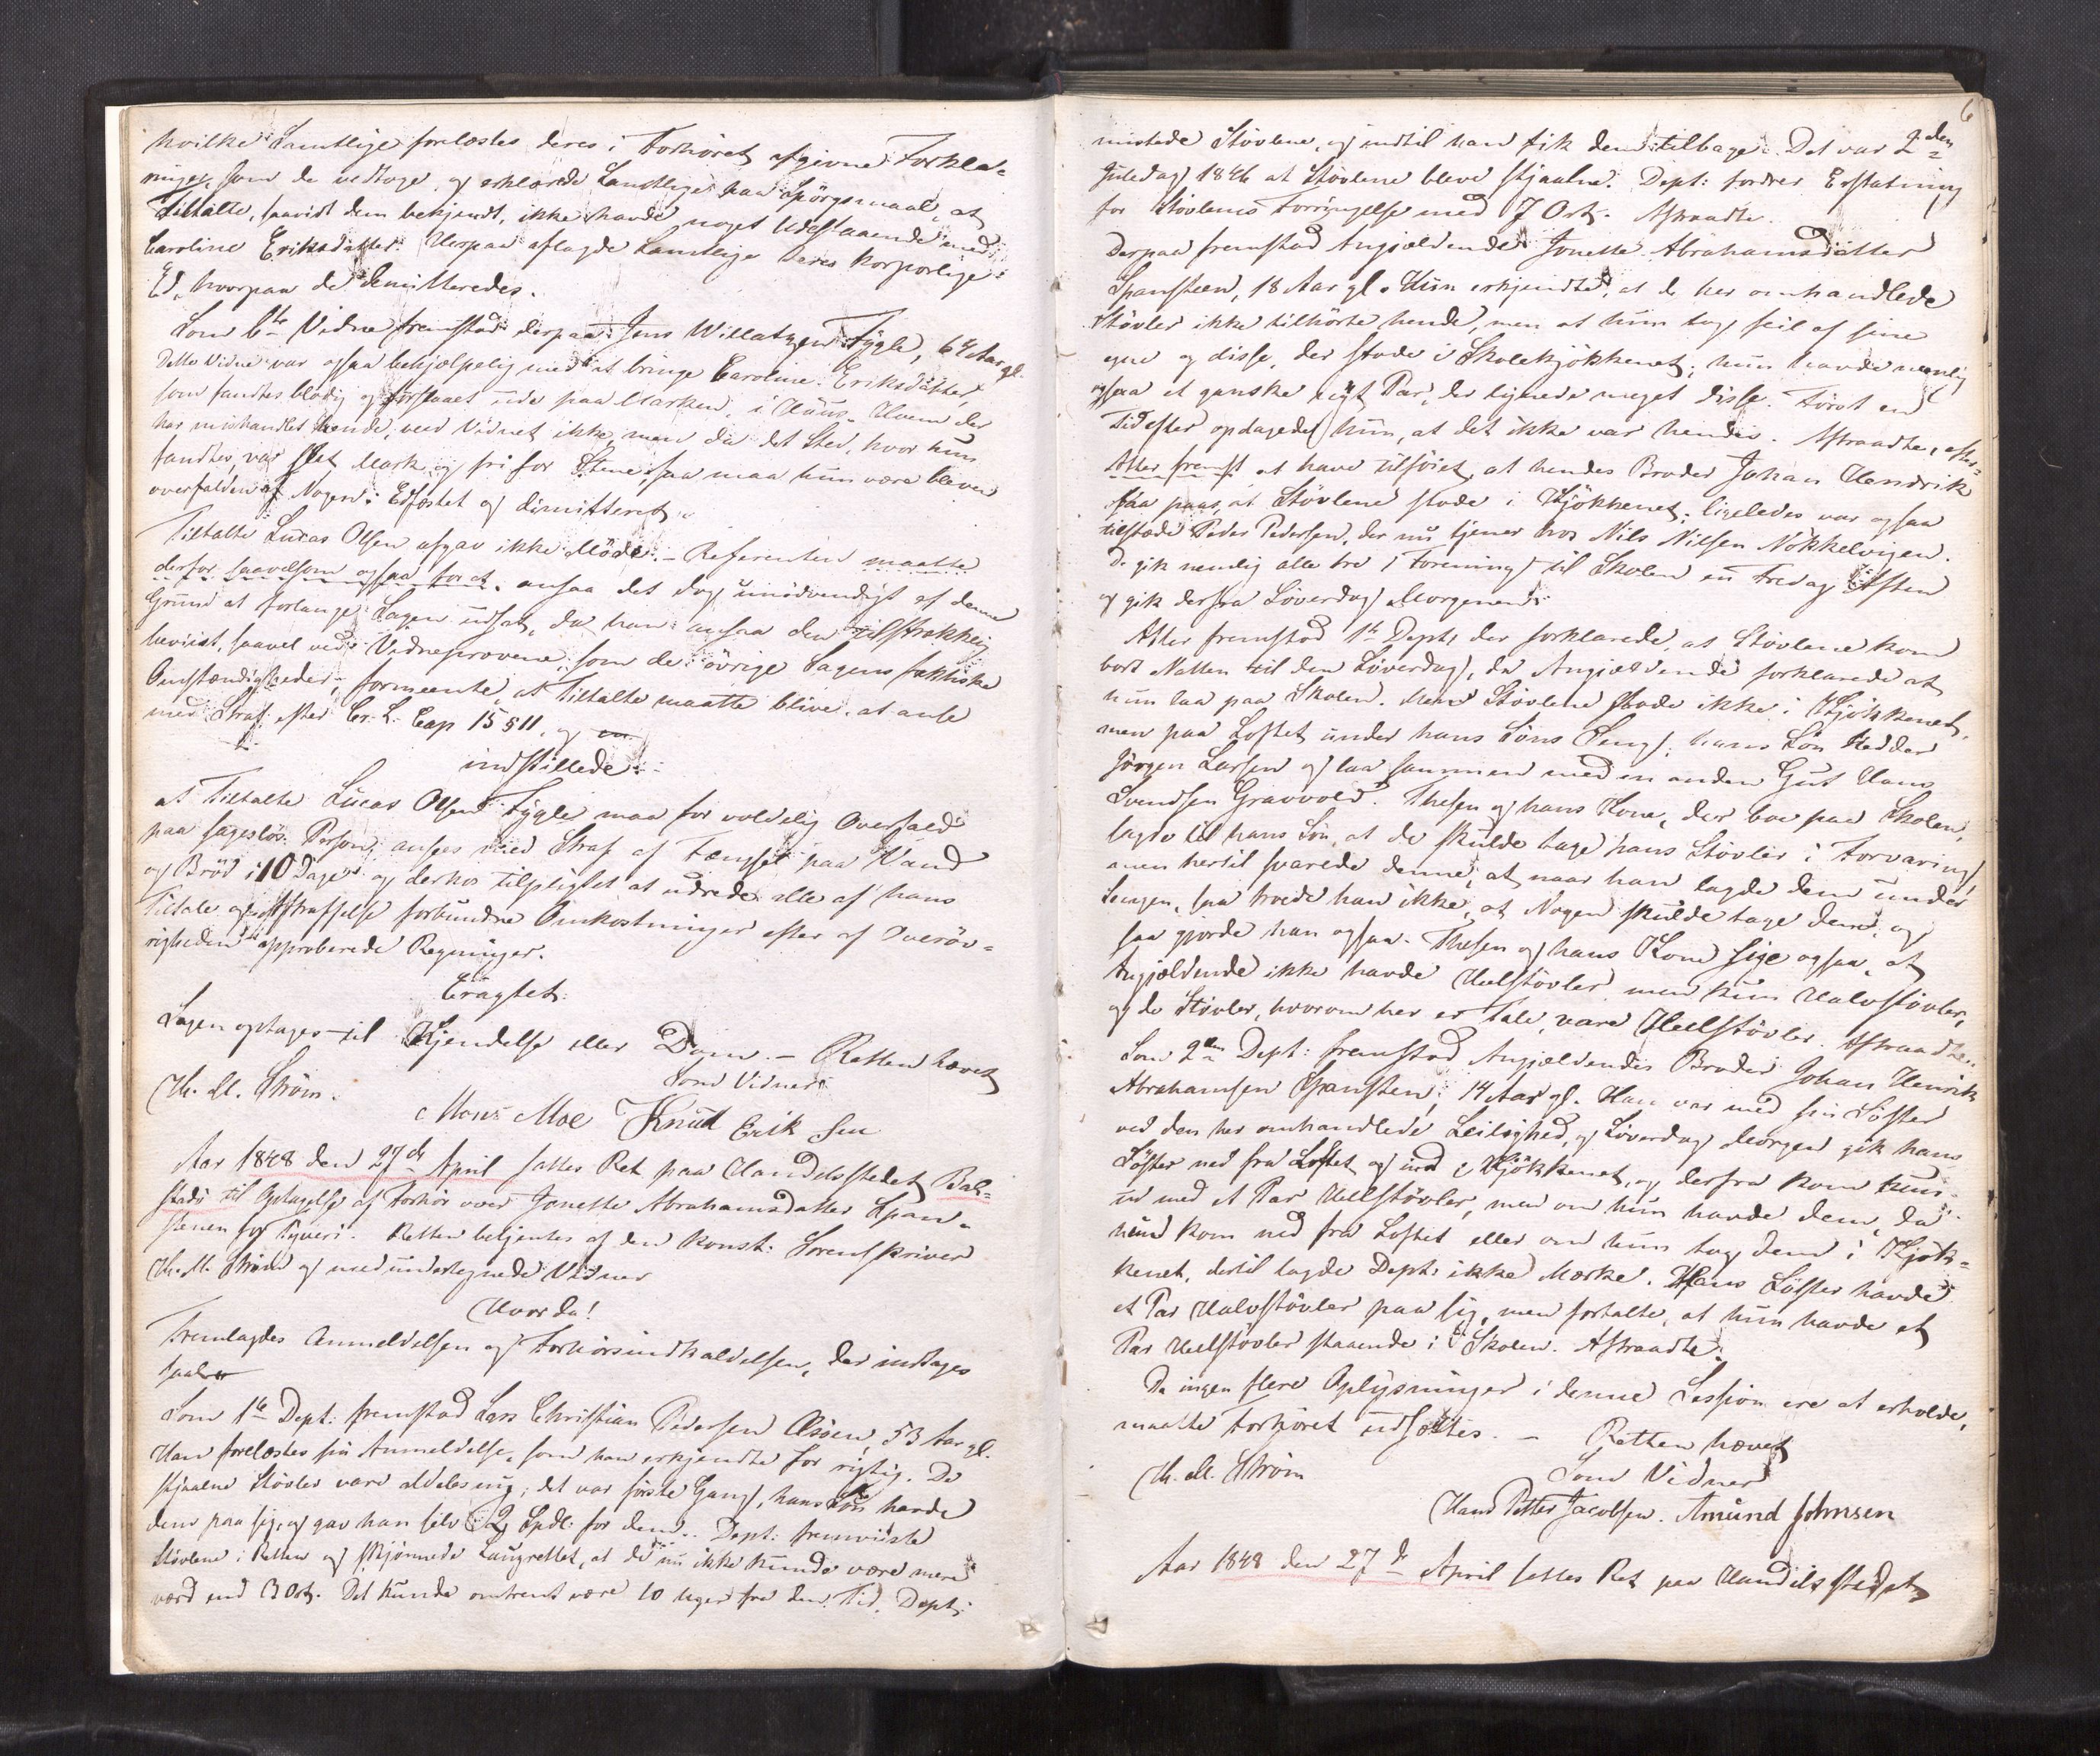 hvilke Samtlige forelæstes deres i Forhöret afgivne Forkla-
ringer, som de vedtoge, og erklærede Samtlige paa Spörgsmaal, at
Tiltalte, saavidt dem bekjendt, ikke havde noget Udestaaende med
Caroline Eriksdatter. Herpaa aflagde Samtlige deres korporlige
Ed, hvorpaa de demitteredes.
Som 6te Vidne fremstod derpaa Jens Willatzen Fygle, 64 Aar gl.
Dette Vidne var ogsaa behjælpelig med at bringe Caroline Eriksdatter,
som fandtes blodig og forslaaet ude paa Marken, i Huus. Hvem der
har mishandlet hende, veed Vidnet ikke, men da det Sted, hvor hun
fandtes, var slet Mark og fri for Stene, saa maa hun være bleven
overfalden af Nogen. Edfæstet og dimitteret.
Tiltalte Lucas Olsen afgav ikke Möde. - Referenten maatte
derfor saavelsom ogsaa for at ansaa det dog unödvendigt af denne
Grund at forlange Sagen udsat, da han ansaa den tilstrækkelig
beviist, saavel ved Vidneprovene, som de övrige Sagens faktiske
Omstændigheder, formeente, at Tiltalte maatte blive at ansee
med Straf efter Cr. L. Cap 15 § 11, og
indstillede:
at Tiltalte Lucas Olsen Fygle maa for voldelig Overfald
paa sageslös Person, ansees med Straf af Fængsel paa Vand
og Bröd i 10 Dage og derhos tilpligtet at udrede alle af hans
Tiltale og Afstraffelse forbundne Omkostninger efter af Overöv-
righeden approberede Regninger.
Eragtet:
Sagen optages til Kjendelse eller Dom. - Retten hævet
Th. M. Ström. Som Vidner
Mons Moe Knud Erik Sen
Aar 1848 den 27de April sattes Ret paa Handelsstedet Bal-
stad til Optagelse af Forhör over Jonette Abrahamsdatter Span-
stenen for Tyveri. Retten betjentes af den konst: Sorenskriver
Th. M. Ström og medundertegnede Vidner
Hvor da!
Fremlagdes Anmeldelsen og Forhörsindkaldelsen, der indtages
saaler
Som 1te Dept: fremstod Lars Christian Pedersen Æsöien, 53 Aar gl.
Han forelæstes sin Anmeldelse, som han erkjendte for rigtig. De
stjaalne Stövler vare aldeles ny; det var förste Gang, hans Sön havde
dem paa sig, og gav han selv 2 Spdl: for dem. Dept: fremviiste
Stövlene i Retten og skjönnede Laugrettet, at de nu ikke kunde være mere
værd end 3 Ort. Det kunde omtrent være 10 Uger fra den Tid, Dept:
6
mistede Stövlene, og indtil han fik dem tilbage. Det var 2den
Juledag 1846 at Stövlene bleve stjaalne. Dept: fordrer Erstatning
for Stövlenes Forringelse med 7 Ort. Aftraadte.
Derpaa fremstod Angjældende Jonette Abrahamsdatter
Spansteen, 18 Aar gl. Hun erkjendte, at de her omhandlede
Stövler ikke tilhörte hende, men at hun tog feil af sine
egne og disse, der stode i Skolekjökkenet; hun havde nemlig
ogsaa et ganske nyt Par, der lignede meget disse. Förat en
Tid efter opdagede hun, at det ikke var hendes. Aftraadte, efter
Atter fremst at have tilföiet, at hendes Broder Johan Hendrik
saa paa, at Stövlene stode i Kjökkenet; ligeledes var ogsaa
tilstede Peder Pedersen, der nu tjener hos Nils Nilsen Nökkelvigen.
De gik nemlig alle tre i Forening til Skolen en Fredag Aften
og gik derfra Löverdag Morgenen.
Atter fremstod 1te Dept, der forklarede, at Stövlene kom
bort Natten til den Löverdag, da Angjældende forklarede at
hun laa paa Skolen. Men Stövlene stode ikke i Kjökkenet,
men paa Loftet under hans Söns Seng; hans Sön hedder
Jörgen Larsen og laa sammen med en anden Gut Hans
Svendsen Gravvold. Thesen og hans Kone, der boe paa Skolen,
sagde til hans Sön, at de skulde tage hans Stövler i Forvaring
men hertil svarede denne, at naar han lagde dem under
Sengen, saa troede han ikke, at Nogen skulde tage dem, og
saa gjorde han ogsaa. Thesen og hans Kone sige ogsaa, at
Angjældende ikke havde Heelstövler, men kun Halvstövler,
og de Stövler, hvorom her er Tale, vare Heelstövler. Aftraadte.
Som 2den Dept: fremstod Angjældendes Broder Johan Henrik
Abrahamsen Spansten, 14 Aar gl. Han var med sin Söster
ved den her omhandlede Leilighed, og Löverdag Morgen gik hans
Söster ned fra Loftet og ind i Kjökkenet, og derfra kom hun
ud med et Par Heelstövler, men om hun havde dem, da
hun kom ned fra Loftet eller om hun tog dem i Kjök-
kenet, dertil lagde Dept: ikke Mærke. Hans Söster havde
et Par Halvstövler paa sig, men fortalte, at hun havde et
Par Heelstövler staaende i Skolen. Aftraadte.
Da ingen flere Oplysninger i denne Session ere at erholde,
maatte Forhöret udsættes. - Retten hævet
Th. M. Ström Som Vidner
Hans Petter Jacobsen. Amund Johnsen
Aar 1848 den 27de April sattes Ret paa Handelsstedet